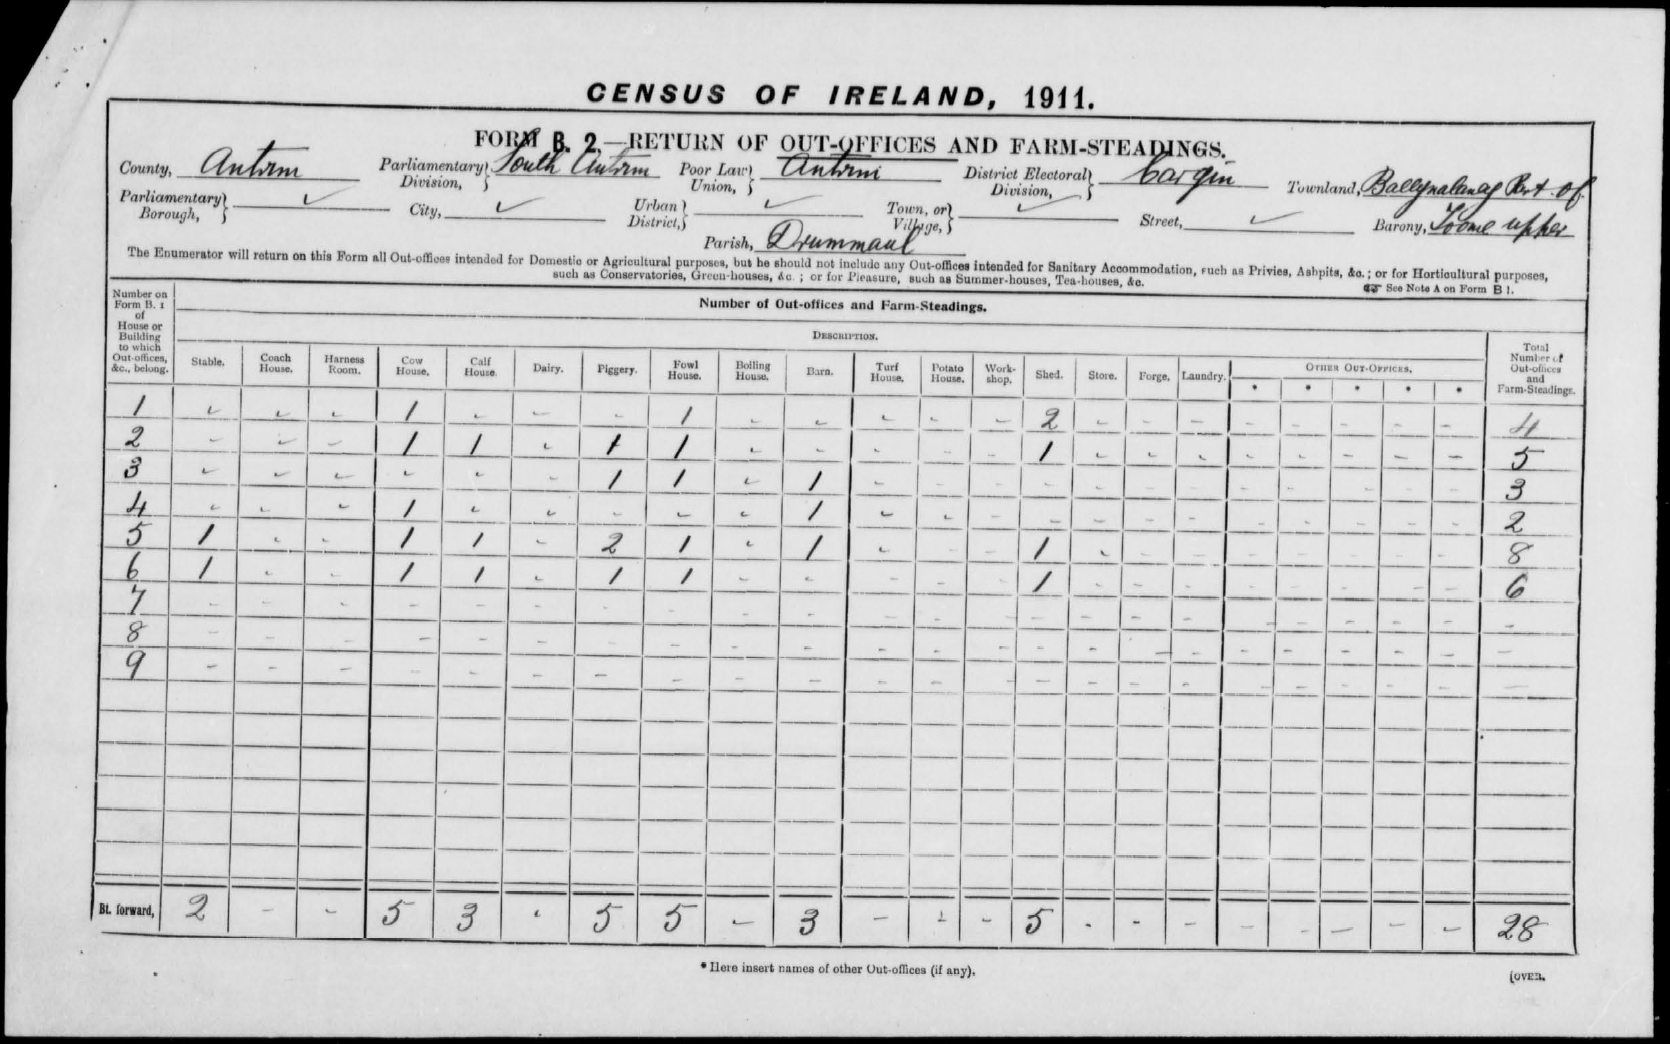 CENSUS OF IRELAND, 1911.
FORM B. 2.—RETURN OF OUT-OFFICES AND FARM-STEADINGS.
County, Antrim Parliamentary Division, South Antrim Poor Law Union, Antrim District Electoral Division, Cargin Townland, Ballynalaney Part of
Parliamentary Borough, ✓ City, ✓ Urban District, ✓ Town, or Village, ✓ Street, ✓ Barony, Toome upper
Parish, Drummaul
The Enumerator will return on this Form all Out-offices intended for Domestic or Agricultural purposes, but he should not include any Out-offices intended for Sanitary Accommodation, such as Privies, Ashpits, &c.; or for Horticultural purposes,
such as Conservatories, Green-houses, &c.; or for Pleasure, such as Summer-houses, Tea-houses, &c.
☞ See Note A on Form B 1.
Number on Form B. 1 of House or Building to which Out-offices, &c., belong.
Number of Out-offices and Farm-Steadings.
DESCRIPTION.
Stable. Coach House. Harness Room. Cow House. Calf House. Dairy. Piggery. Fowl House. Boiling House. Barn. Turf House. Potato House. Work-shop. Shed. Store. Forge. Laundry. OTHER OUT-OFFICES. * * * * * Total Number of Out-offices and Farm-Steadings.
1 - - - 1 - - - 1 - - - - - 2 - - - - - - - - 4
2 - - - 1 1 - 1 1 - - - - - 1 - - - - - - - - 5
3 - - - - - - 1 1 - 1 - - - - - - - - - - - - 3
4 - - - 1 - - - - - 1 - - - - - - - - - - - - 2
5 1 - - 1 1 - 2 1 - 1 - - - 1 - - - - - - - - 8
6 1 - - 1 1 - 1 1 - - - - - 1 - - - - - - - - 6
7 - - - - - - - - - - - - - - - - - - - - - - -
8 - - - - - - - - - - - - - - - - - - - - - - -
9 - - - - - - - - - - - - - - - - - - - - - - -
Bt. forward, 2 - - 5 3 - 5 5 - 3 - - - 5 - - - - - - - - 28
* Here insert names of other Out-offices (if any).
[OVER.